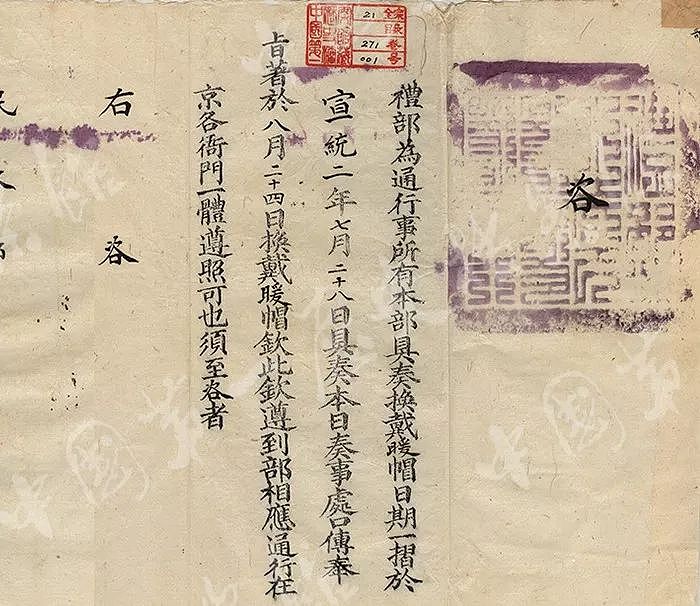 咨
禮部為通行事所有本部具奏換戴暖帽日期一摺於
宣統二年七月二十八日具奏本日奏事處口傳奉
旨著於八月二十四日換戴暖帽欽此欽遵到部相應通行在
京各衙門一體遵照可也須至咨者
右咨
民政部
全宗 21
271
卷号 001